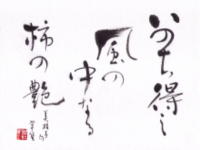 いのち得し
風の
中なる
柿の艶